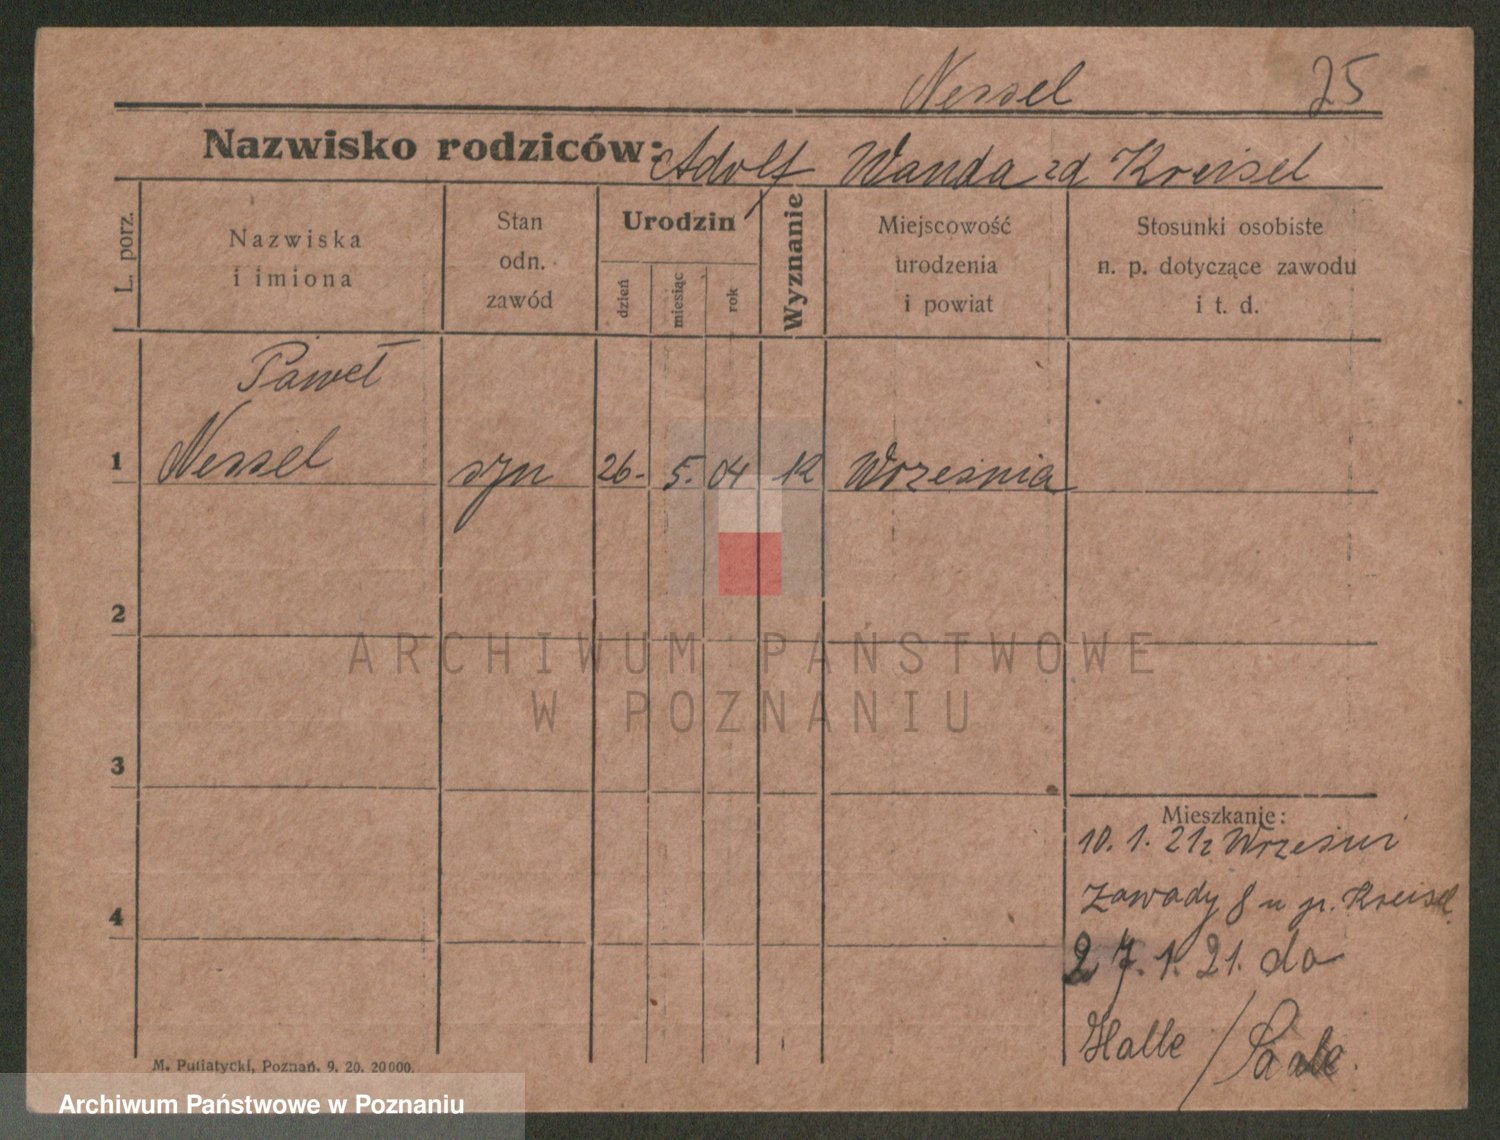 Nessel 25
Nazwisko rodziców: Adolf Wanda zd Kreisel
L. porz.
Nazwiska
i imiona
Stan
odn.
zawód
Urodzin
dzień
miesiąc
rok
Wyznanie
Miejscowość
urodzenia
i powiat
Stosunki osobiste
n. p. dotyczące zawodu
i t. d.
Paweł
1 Nessel syn 26. 5. 04 k Września
2
3
4
Mieszkanie:
10. 1. 21 z Wrześni
Zawady 8 u p. Kreisel
27. 1. 21. do
Halle / Saale.
M. Putiatycki, Poznań. 9. 20. 20000.
ARCHIWUM PAŃSTWOWE
W POZNANIU
Archiwum Państwowe w Poznaniu